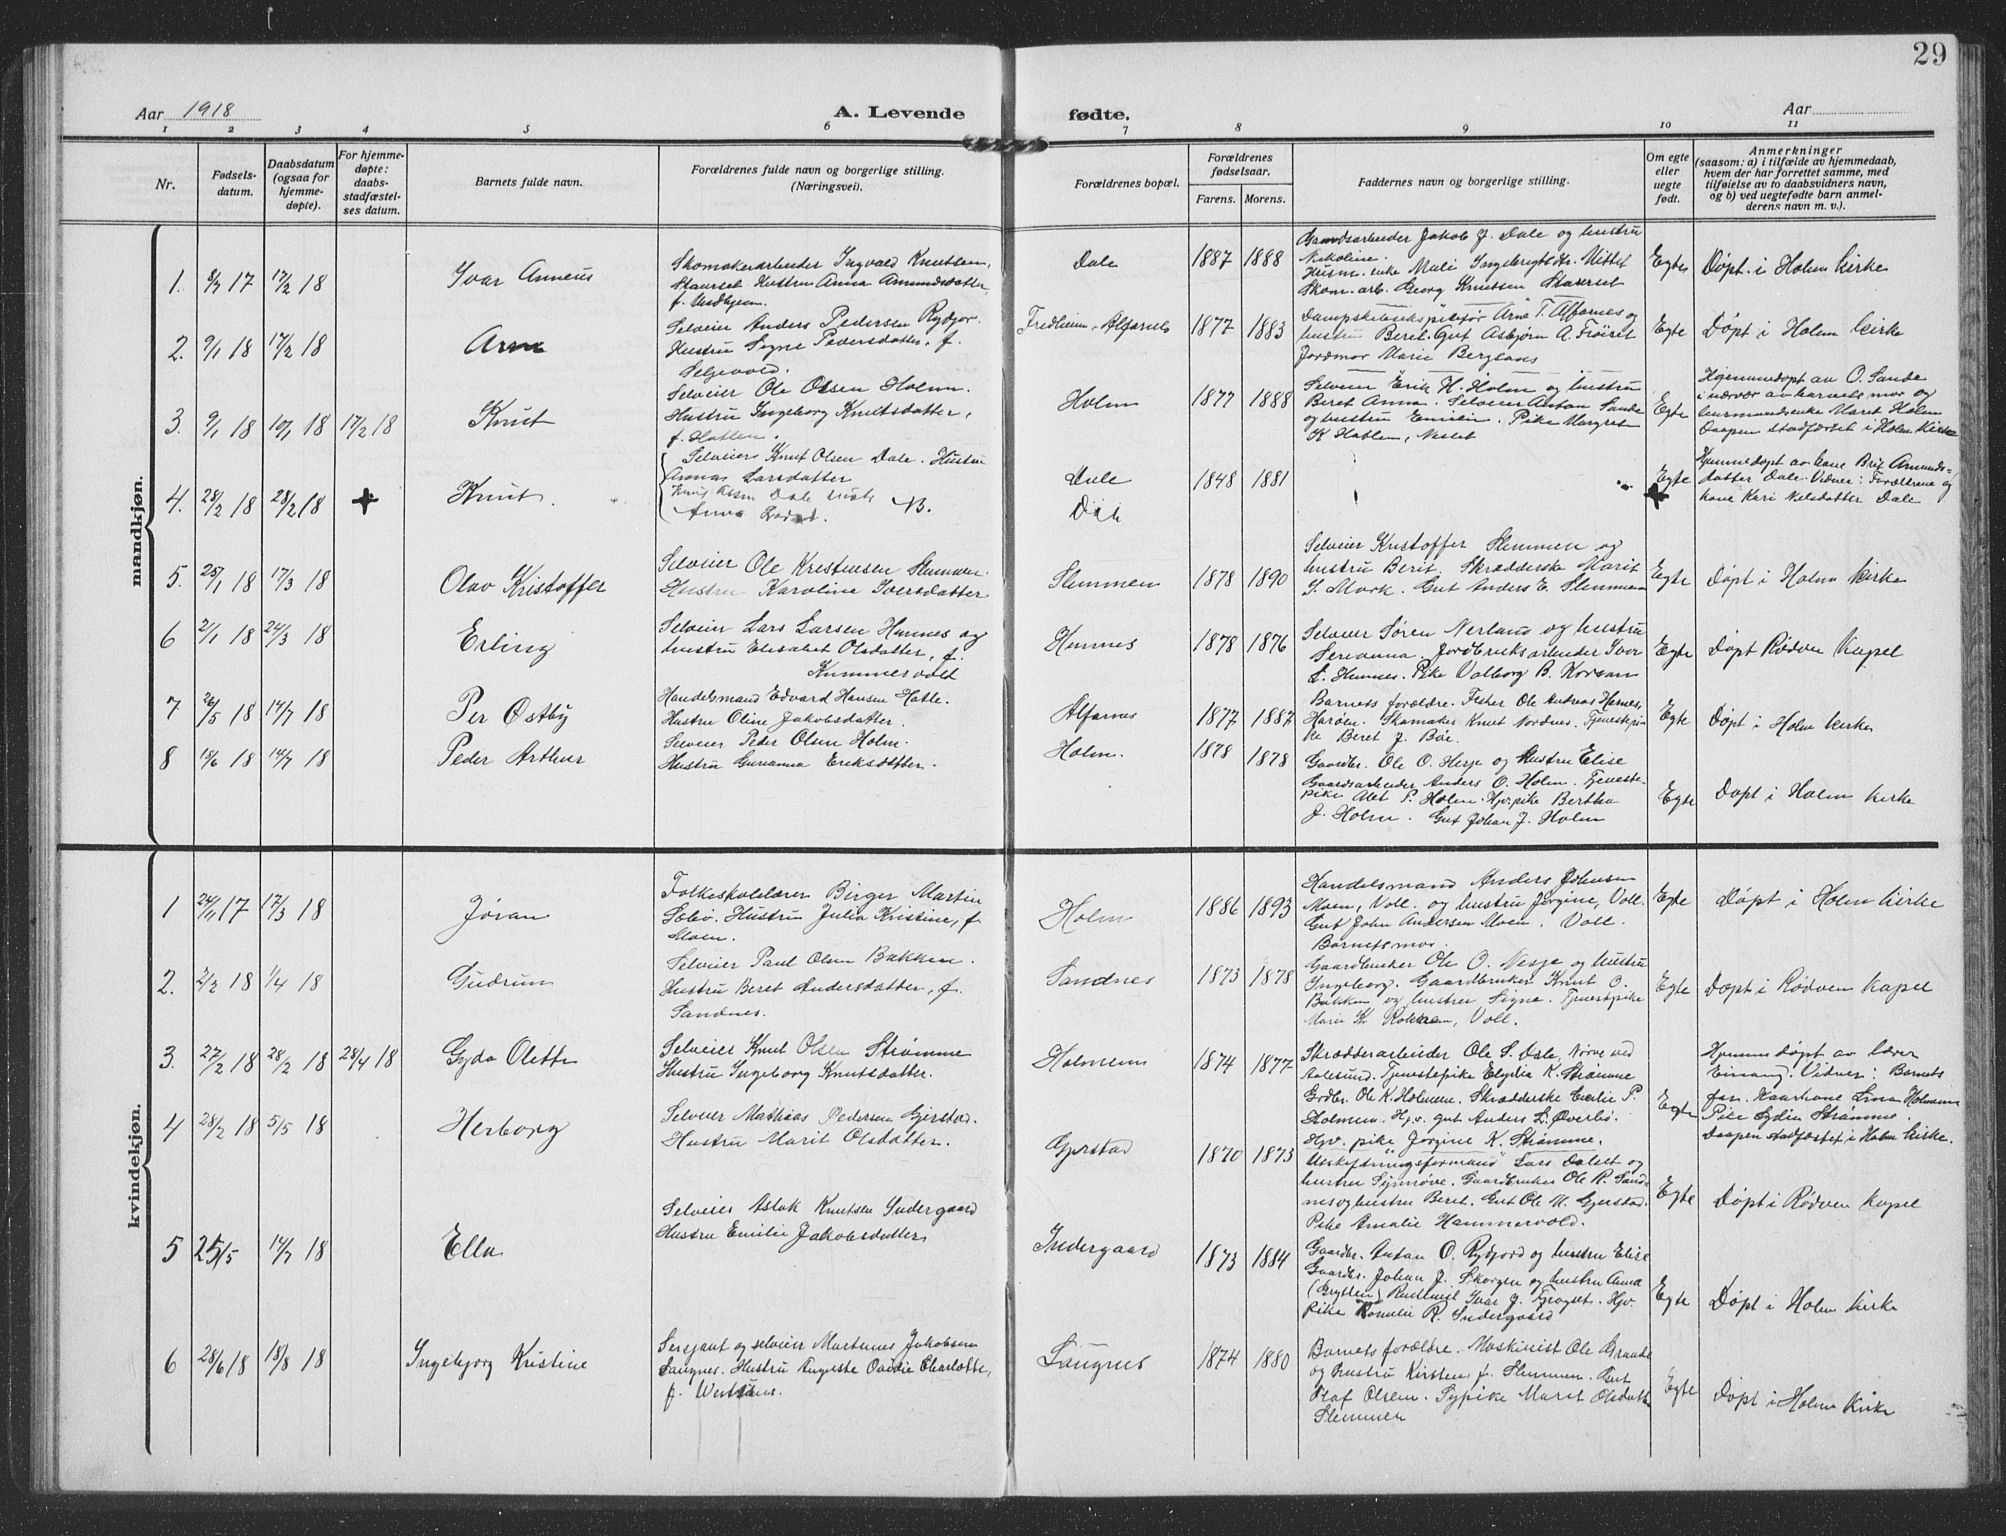 29
Aar 1918
A. Levende fødte.
Aar
1 2 3 4 5 6 7 8 9 10 11
Nr.
Fødsels-
datum.
Daabsdatum
(ogsaa for
hjemme-
døpte).
For hjemme-
døpte:
daabs-
stadfæstel-
ses datum.
Barnets fulde navn.
Forældrenes fulde navn og borgerlige stilling.
(Næringsvei).
Forældrenes bopæl.
Forældrenes
fødselsaar.
Farens. Morens.
Faddernes navn og borgerlige stilling.
Om egte
eller
uegte
født.
Anmerkninger
(saasom: a) i tilfælde av hjemmedaab,
hvem der har forrettet samme, med
tilføielse av to daabsvidners navn,
og b) ved uegtefødte barn anmel-
derens navn m. v.).
mandkjøn.
1. 9/7 17 17/2 18 Ivar Anneus
Skomakerarbeider Ingvald Knutsen,
Hustru Anna Amundsdatter,
Dale 1887 1888
Gaardsarbeider Jakob J. Dale og hustru
Nikoline.
Skom. arb. Georg Knutsen
Egte Døpt i Holm kirke
2. 9/1 18 17/2 18 Arne
Selveier Anders Pedersen Rydjor.
Hustru Signe Pedersdatter, f.
Seljevold.
Fredheim, Alfarnes 1877 1883
Dampskibsekspeditør Arne T. Alfarnes og
hustru Beret. Gut Asbjørn A. Frøiset
Jordmor Marie
Egte Døpt i Holm kirke
3. 9/1 18 10/1 18 17/2 18 Knut
Selveier Ole Olsen Holm.
Hustru Ingeborg Knutsdatter,
f. Hatlen.
Holm 1877 1888
Selveier Erik H. Holm og hustru
Beret Anna. Selveier Anton Sande
og hustru Emilie. Pike Margret
K. Hatlen, Nesset
Egte Hjemmedøpt av O. Sande
i nærvær av barnets mor og
husmandsenke Maret Holm
Daapen stadfæstet i Holm kirke
4. 28/2 18 28/2 18 Knut
Selveier Knut Olsen Dale. Hustru
Larsdatter
NB.
Dale 1848 1881
Egte Hjemmedøpt av kone Brit Amunds-
datter Dale. Vidner: Forældrene og
kone Kari Nilsdatter Dale
5. 25/1 18 17/3 18 Olav Kristoffer
Selveier Ole Kristensen Slemmen.
Hustru Karoline Iversdatter
Slemmen 1878 1890
Selveier Kristoffer Slemmen og
hustru Berit. Skrædderske Marit
I. Mork. Gut Anders E. Slemmen
Egte Døpt i Holm kirke
6 2/1 18 24/3 18 Erling
Selveier Lars Larsen Humnes og
hustru Elisabet Olsdatter, f.
Hammervold
Humnes 1878 1876
Selveier Søren Nerland og hustru
Serianna. Jordbruksarbeider Ivar
L. Humnes. Pike Valborg B. Korsan
Egte Døpt Rødven Kapel
7 26/5 18 14/7 18 Per Østby
Handelsmand Edvard Hansen Hatle.
Hustru Oline Jakobsdatter.
Alfarnes 1877 1887
Barnets forældre. Fisker Ole Andreas Harnes,
Harøen. Skomaker Knut Nordnes. Tjenestepi-
ke Beret J. Bøe.
Egte Døpt i Holm kirke
8 15/6 18 14/7 18 Peder Arthur
Selveier Peter Olsen Holm.
Hustru Gurianna Eriksdatter.
Holm. 1878 1878
Gaardbr. Ole O. Hesje og hustru Elise
Gaardsarbeider Anders O. Holm. Tjeneste-
pike Alet P. Holm. Hjv. pike Bertha
J. Holm. Gut Johan J. Holm
Egte Døpt i Holm kirke
kvindekjøn.
1 24/11 17 17/3 18 Jøran
Folkeskolelærer Birger Martin
Sæbø. Hustru Julie Kristine, f.
Moen.
Holm 1886 1893
Handelsmand Anders Johnsen
Moen, Voll. og hustru Jørgine, Voll.
Gut John Andersen Moen. Voll.
Barnets mor.
Egte Døpt i Holm kirke
2. 2/2 18 1/4 18 Gudrun
Selveier Paul Olsen Bakken.
Hustru Beret Andersdatter, f.
Sandnes.
Sandnes 1873 1878
Gaardbruker Ole O. Nesje og hustru
Ingeborg. Gaardbruker Knut O.
Bakken og hustru Signe. Tjenestpike
Marie K. Rokken, Voll.
Egte Døpt i Rødven kapel
3. 27/2 18 28/2 18 28/4 18 Gyda Olette
Selveier Knut Olsen Strømme
Hustru Ingeborg Knutsdatter.
Holmem 1874 1877
Skrædderarbeider Ole S. Dale, Nørve ved
Aalesund. Tjenestepike Elydia K. Strømme
Grdbr. Ole K. Holmem. Skrædderske Emilie P.
Holmen. Hjv. gut Anders L. Øverbø.
Hjv. pike Jørgine K. Strømme.
Egte Hjemmedøpt av lærer
Einang. Vidner: Barnets
far. Kaarkone Lina Holmem
Pike Lydia Strømme.
Daapen stadfæstet i Holm kirke.
4 28/2 18 5/5 18 Herborg
Selveier Mathias Pedersen Gjerstad.
Hustru Marit Olsdatter.
Gjerstad 1870 1873
Utskiftningsformand Lars Dalset og
hustru Synnøve. Gaardbruker Ole R. Sand-
nes og hustru Beret. Gut Ole M. Gjerstad.
Pike Amalie Hammervold.
Egte Døpt i Rødven kapel
5 25/5 14/7 18 Ella
Selveier Aslak Knutsen Indergaard
Hustru Emilie Jakobsdatter
Indergaard 1873 1884
Gaardbr. Anton O. Rydjord og hustru Elise
Gaardbr. Johan J. Skorgen og hustru Anna
Ivar J. Hjv.
pike Romelie R. Indergaard
Egte Døpt i Holm kirke
6 28/6 18 18/8 18 Ingebjørg Kristine
Serjant og selveier Martinus Jakobsen
Laugnes. Hustru Augusta Charlotte,
f.
Laugnes 1874 1880
Barnets forældre. Maskinist Ole Grande
og hustru Kirsten, f. Slemmen. Gut
Olaf Olsen. Sypike Maret Olsdatter
Slemmen
Egte Døpt i Holm kirke